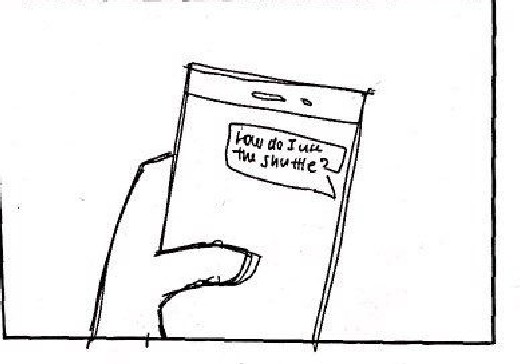 How do I use
the shuttle?